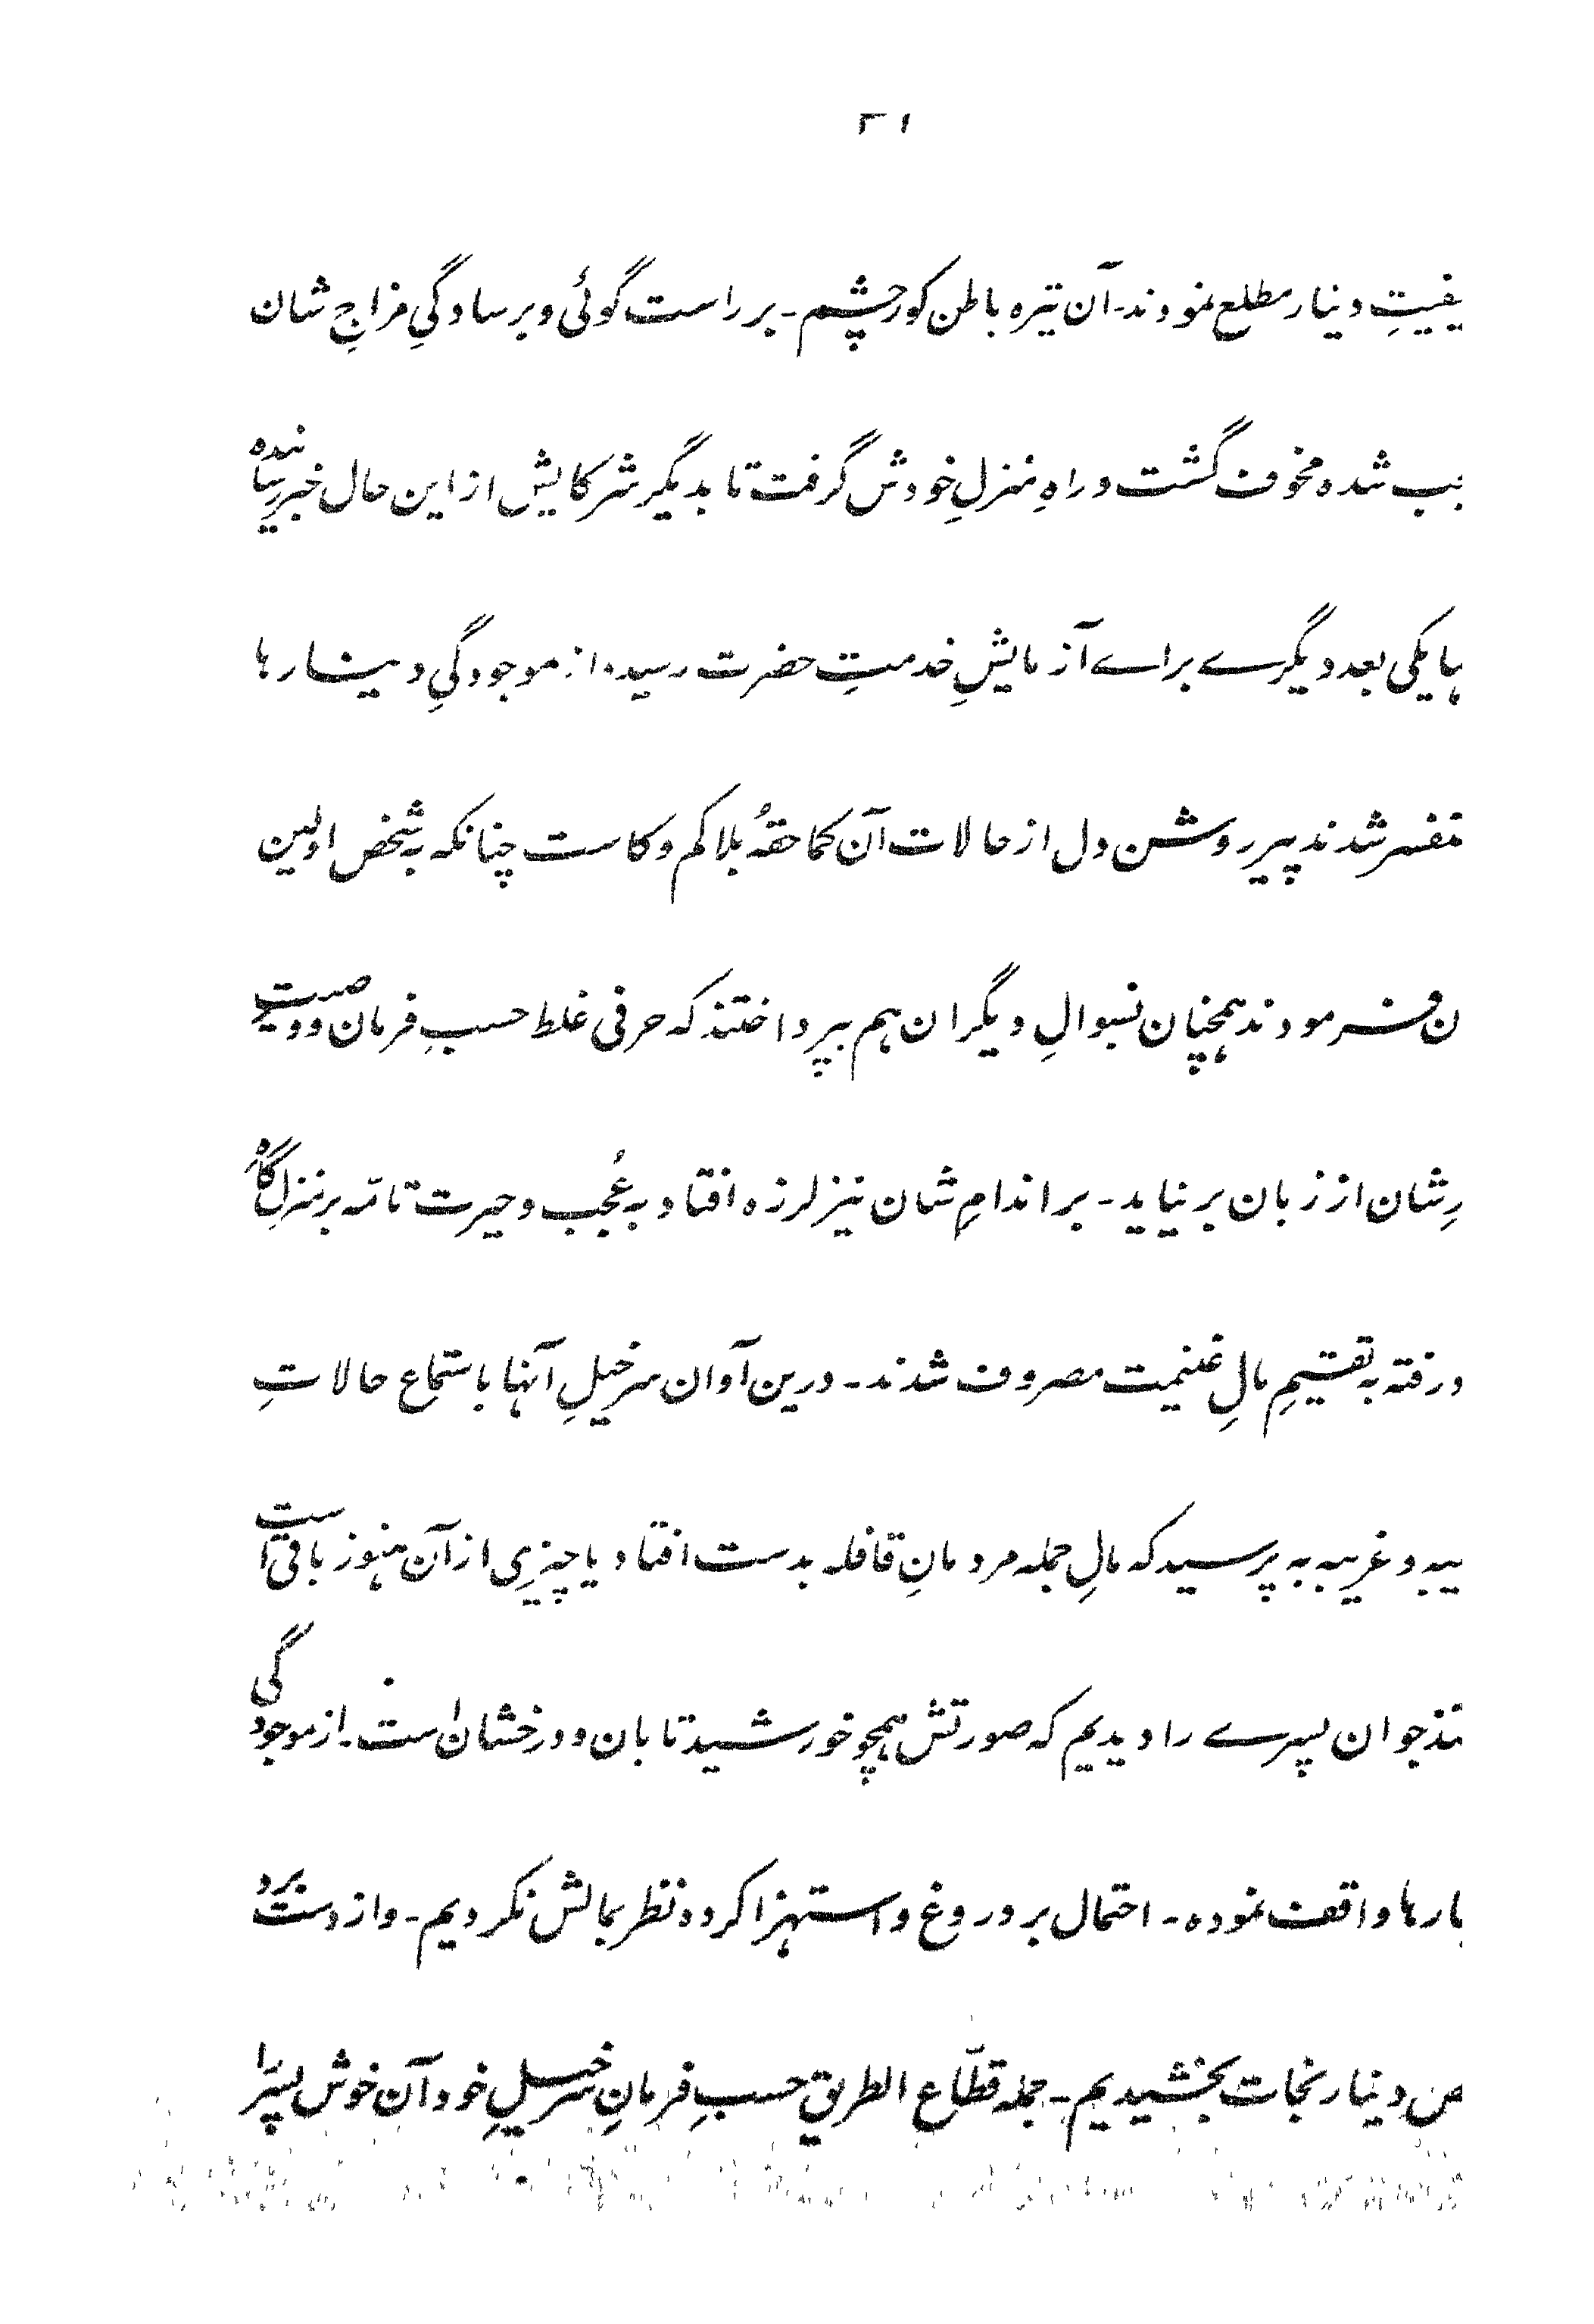 یفیتِ دینار مطلع نمودند۔ آن تیره باطن کور چشم۔ بر راست گوئی و بر سادگیِ مزاجِ شان
جب شده مخوف گشت و راهِ منزلِ خودش گرفت تا بدیگر شرکایش از این حال خبر رسانیده
ہا یکی بعد دیگرے براے آزمایشِ خدمتِ حضرت رسیده از موجودگیِ دینارہا
تفسر شدند پیر روشن دل از حالات آن کما حقهُ بلا کم و کاست چنانکه به شخص اولین
ن فرمودند همچنان بسوالِ دیگران هم بپرداختند که حرفی غلط حسبِ فرمان و وصیت
رِ شان از زبان بر نیاید۔ بر اندامِ شان نیز لرزه افتاد به عُجب و حیرت تامّه بر منزلِ گاهِ
د رفته به تقسیمِ مالِ غنیمت مصروف شدند۔ درین آوان سرخیلِ آنها باستماع حالاتِ
یبه و غریبه به پرسید که مالِ جمله مردمانِ قافله بدست افتاد یا چیزی از آن هنوز باقی است
تند جوان پسرے را دیدیم که صورتش همچو خورشید تابان و درخشان است۔ از موجودگی
نارہا واقف نموده۔ احتمال بر دروغ و استهزا کرده نظر بمالش نکردیم۔ و از دست برد
ص دینار نجات بخشیدیم۔ جمله قطّاع الطریق حسبِ فرمانِ سرخیلِ خود آن خوش پسر را